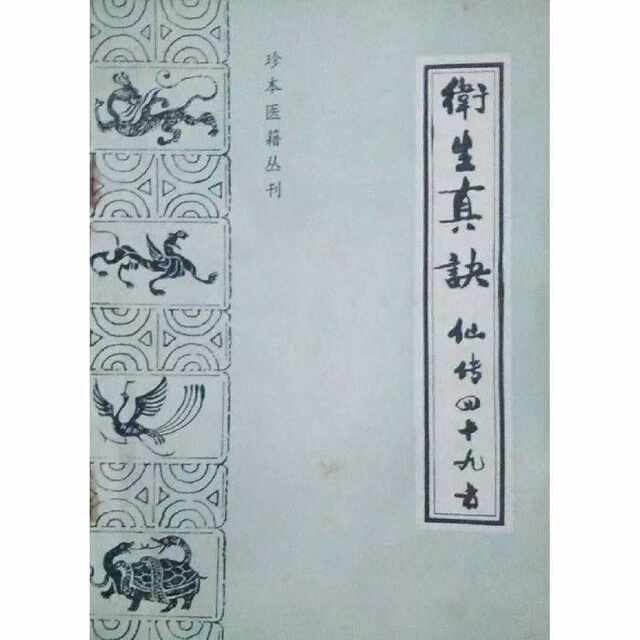 衛生真訣 仙传四十九方
珍本医籍丛刊